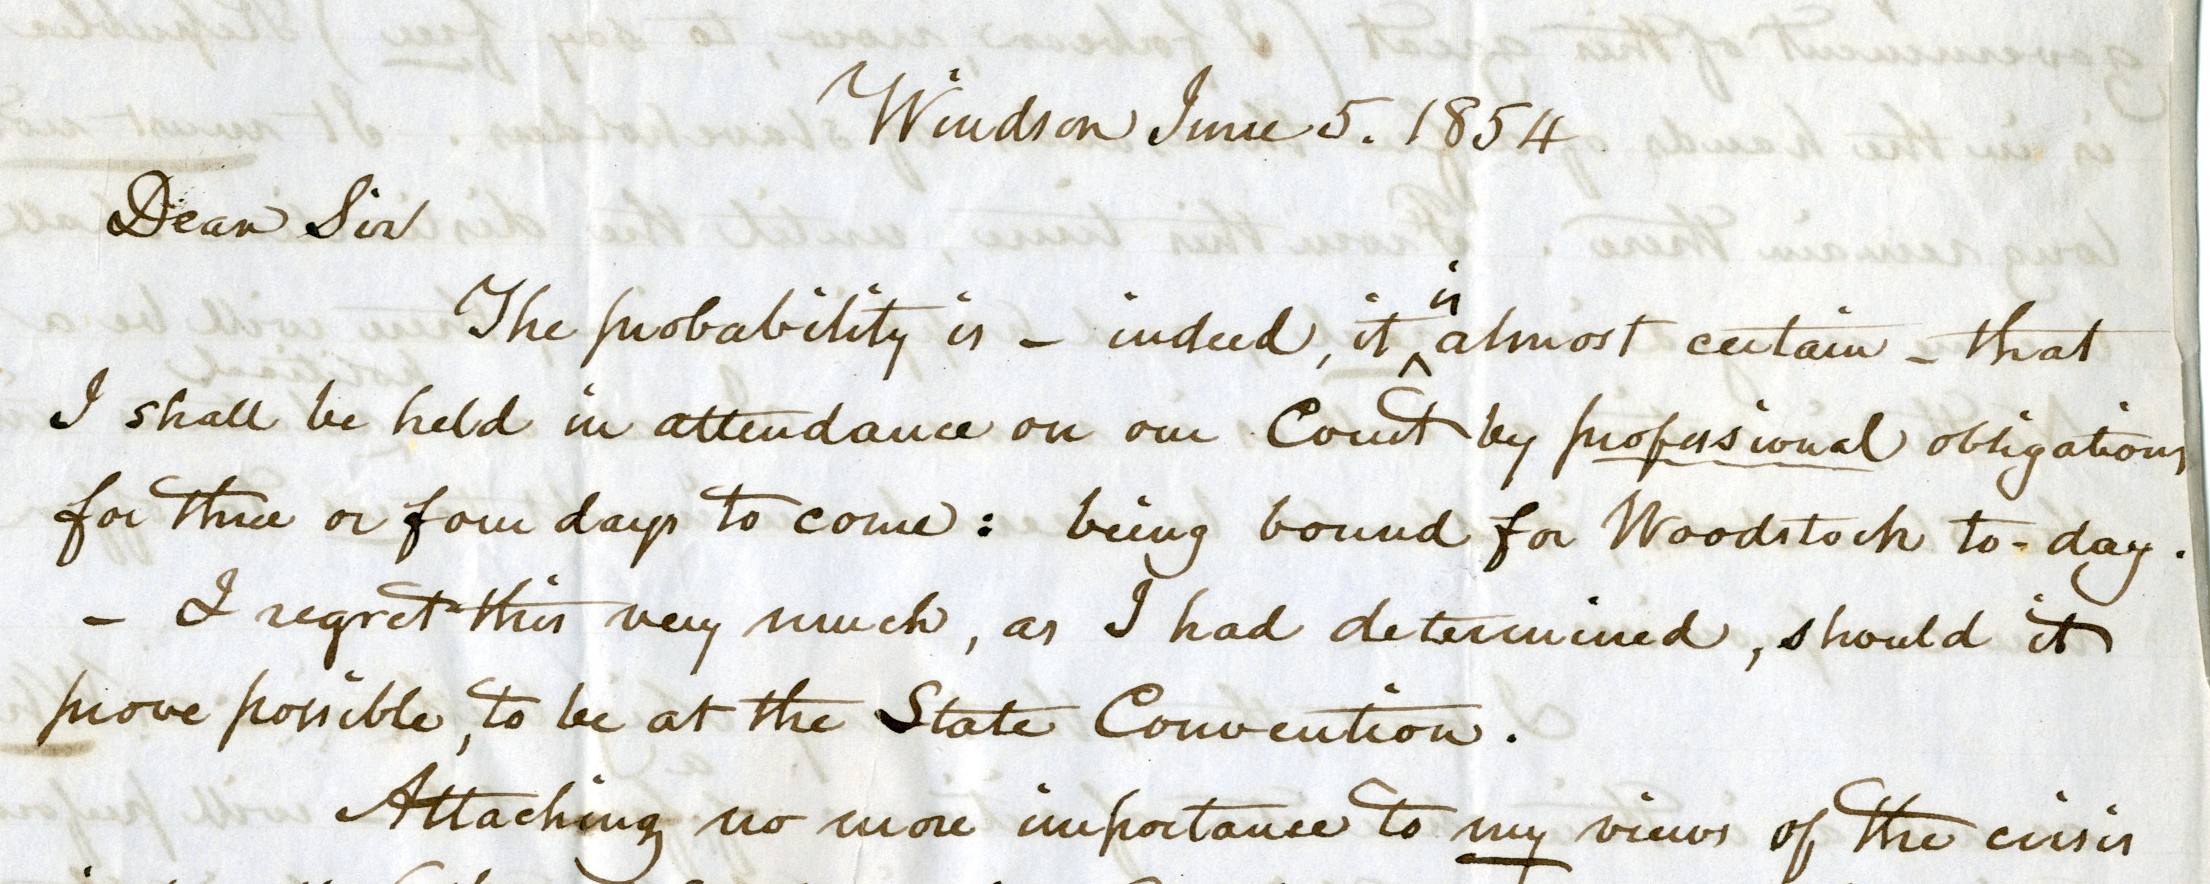 Windsor June 5. 1854
Dear Sir
The probability is – indeed, it is almost certain – that
I shall be held in attendance on our Court by professional obligations
for three or four days to come: being bound for Woodstock to-day.
– I regret this very much, as I had determined, should it
prove possible, to be at the State Convention.
Attaching no more importance to my views of the crisis